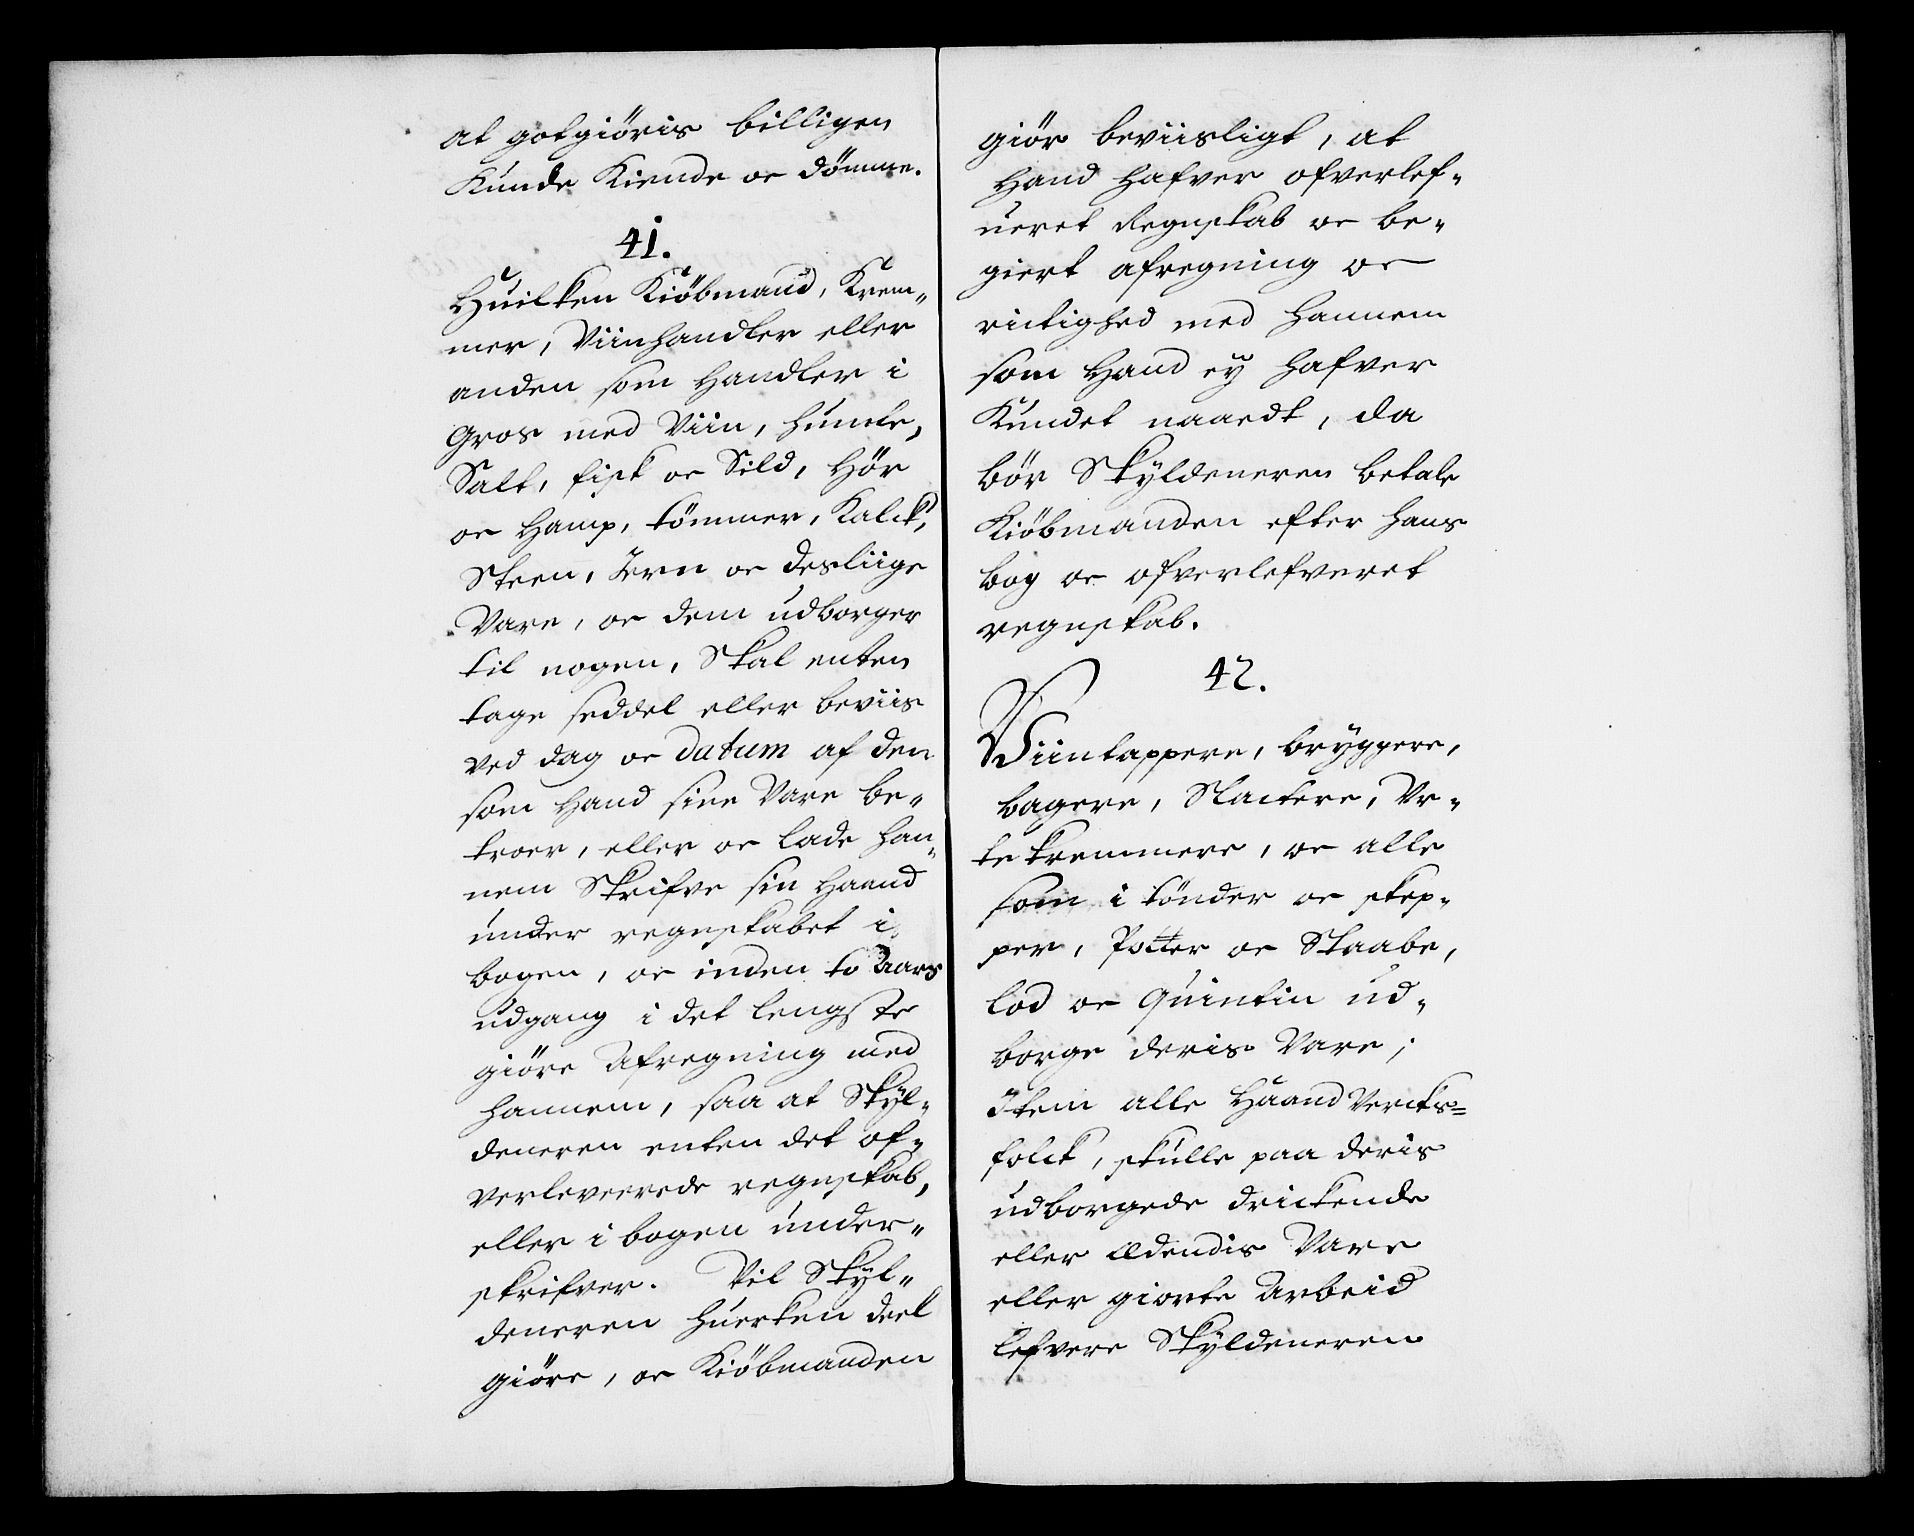 at gotgiöris billigen
Kunde Kiende oc dömme.
41.
Huilken Kiöbmand, Krem„
mer, Viinhandler eller
anden som Handler i
Gros med Viin, humle,
Salt, fisk oc Sild, Hör
oc Hamp, tömmer, Kalck,
Steen, Jern oc desliige
Vare, oc dem udborger
til nogen, Skal enten
tage seddel eller beviis
ved dag oc Datum af den
som Hand sine Vare be„
troer, eller oc lade han„
nem Skrifve sin Haand
under regnskabet i
bogen, oc inden to Aars
udgang i det lengste
giöre Afregning med
hannem, saa at Skyl„
deneren enten det of„
verleverede regnskab,
eller i bogen under„
skrifver. Vil Skyl„
deneren huerken deel
giöre, oc Kiöbmanden
giör beviisligt, at
Hand hafver ofverlef„
ueret Regnskab oc be„
giert afregning oc
rictighed med hannem
som Hand ey hafver
Kundet naaedt, da
bör Skyldeneren betale
Kiöbmanden efter hans
bog oc ofverlefveret
regnskab.
42.
Viintappere, bryggere,
bagere, Slactere, Vr„
tekremmere, oc alle
som i tönder oc skep„
per, Potter oc Skaale,
lod oc Quintin ud„
borge deris Vare;
Item alle Haand Vercks=
folck, skulle paa deris
udborgede drickende
eller ædendis Vare
eller giorte Arbeid
lefvere Skyldeneren